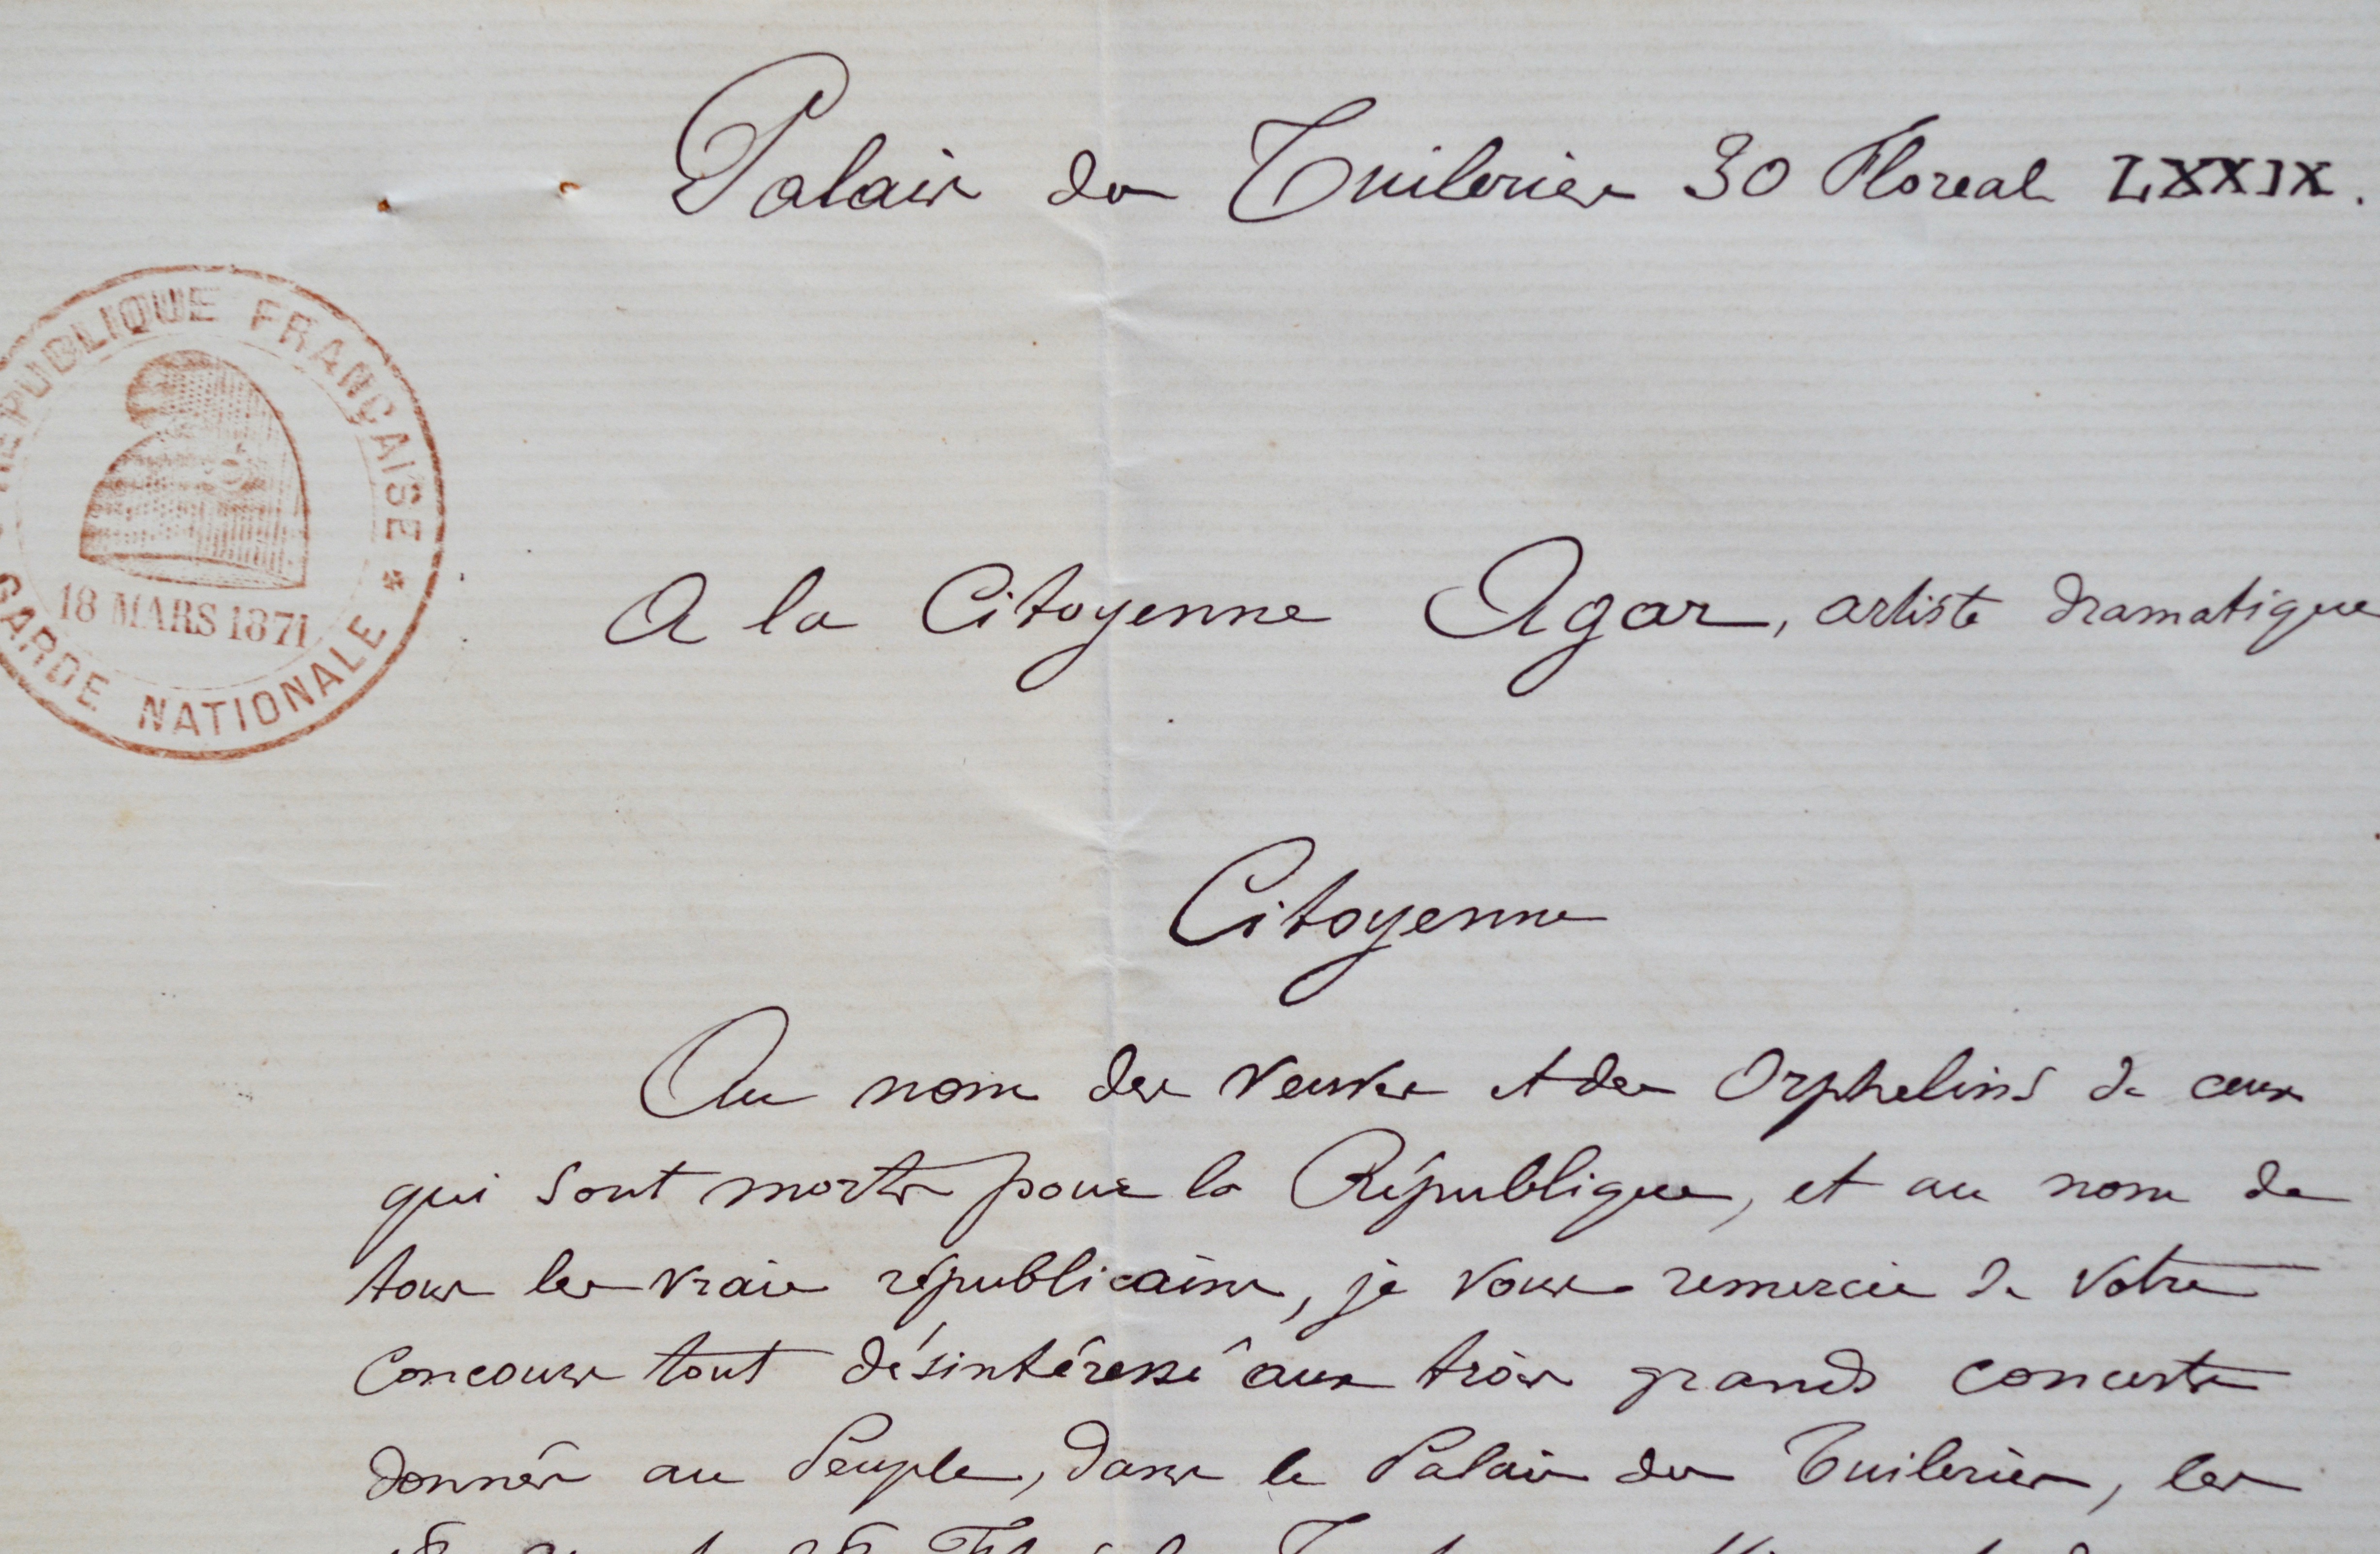 Palais des Tuileries 30 Floreal LXXIX.
RÉPUBLIQUE FRANÇAISE *
18 MARS 1871
GARDE NATIONALE
A la Citoyenne Agar, artiste dramatique
Citoyenne
Au nom des Veuves et des Orphelins de ceux
qui sont morts pour la République, et au nom de
tous les vrais républicains, je vous remercie de votre
Concours tout désintéressé aux trois grands concerts
donnés au Peuple, dans le Palais des Tuileries, les